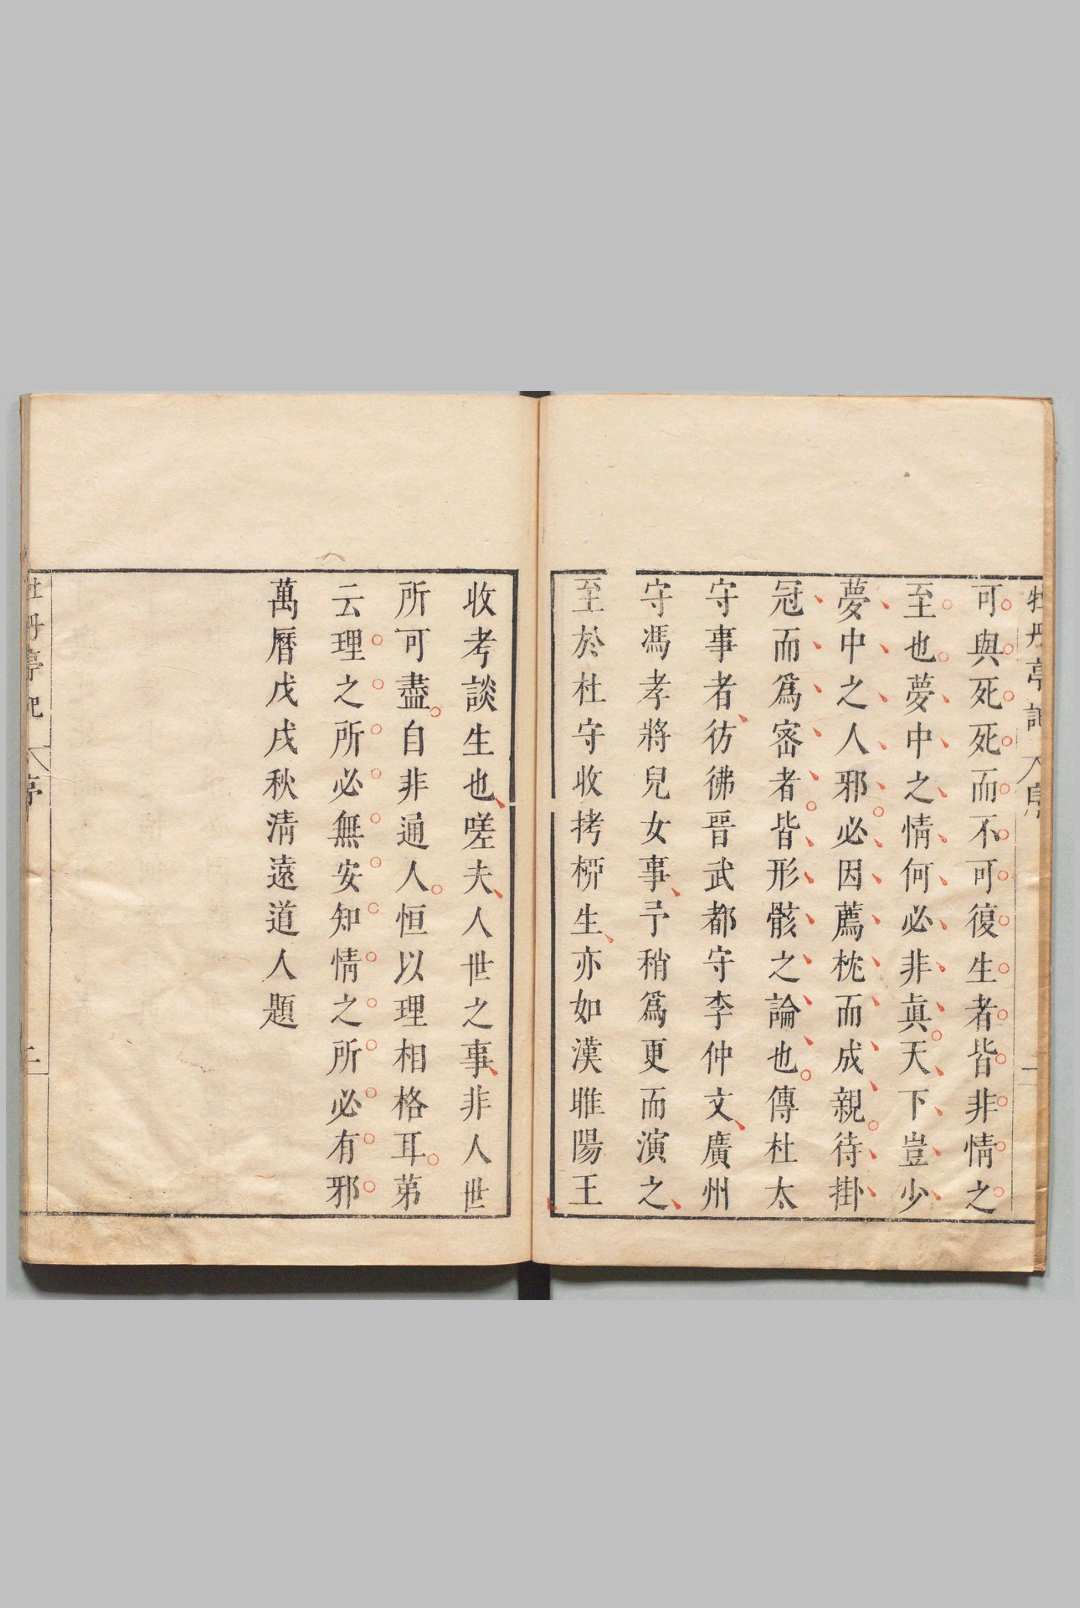 牡丹亭記
可與死死而不可復生者皆非情之
至也夢中之情何必非眞天下豈少
夢中之人邪必因薦枕而成親待掛
冠而爲密者皆形骸之論也傳杜太
守事者彷彿晉武都守李仲文廣州
守馮孝將兒女事予稍爲更而演之
至於杜守收拷柳生亦如漢睢陽王
收考談生也嗟夫人世之事非人世
所可盡自非通人恒以理相格耳第
云理之所必無安知情之所必有邪
萬曆戊戌秋清遠道人題
牡丹亭記